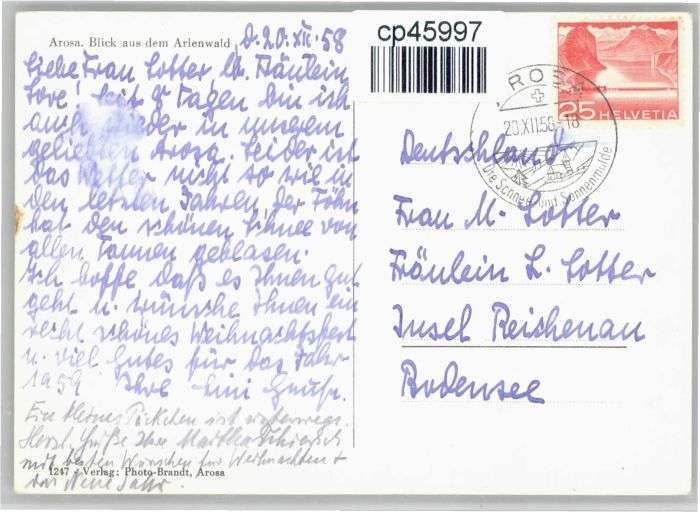 Arosa. Blick aus dem Arlenwald
d. 20. XII. 58
cp45997
Liebe Frau Lotter lb. Fräulein
Lore! Seit 8 Tagen bin ich
auch wieder in unserem
geliebten Arosa. Leider ist
das Wetter nicht so wie in
den letzten Jahren. Der Föhn
hat den schönen Schnee von
allen Tannen geblasen.
Ich hoffe daß es Ihnen gut
geht u. wünsche Ihnen ein
recht schönes Weihnachtsfest
u. viel Gutes für das Jahr
1959 Ihre
Ein kleines Päckchen ist unterwegs.
Herzl. Grüße Ihre
mit besten Wünschen für Weihnachten +
das Neue Jahr.
1247 - Verlag: Photo-Brandt, Arosa
AROSA
20.XII.58-18
Die Schnee und Sonnenmulde
25 HELVETIA
Deutschland
Frau M. Lotter
Fräulein L. Lotter
Insel Reichenau
Bodensee